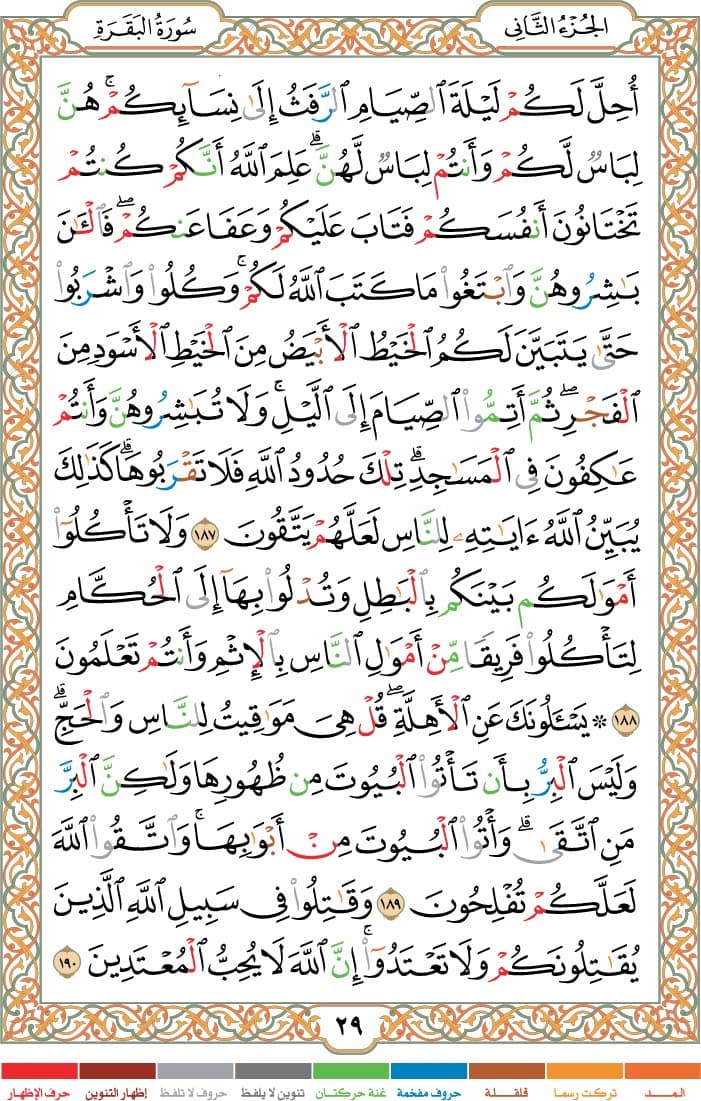 الجُزْءُ الثَّانِي
سُورَةُ البَقَرَةِ
أُحِلَّ لَكُمْ لَيْلَةَ ٱلصِّيَامِ ٱلرَّفَثُ إِلَىٰ نِسَآئِكُمْ ۚ هُنَّ
لِبَاسٌ لَّكُمْ وَأَنتُمْ لِبَاسٌ لَّهُنَّ ۗ عَلِمَ ٱللَّهُ أَنَّكُمْ كُنتُمْ
تَخْتَانُونَ أَنفُسَكُمْ فَتَابَ عَلَيْكُمْ وَعَفَا عَنكُمْ ۖ فَٱلْـَٰٔنَ
بَـٰشِرُوهُنَّ وَٱبْتَغُوا۟ مَا كَتَبَ ٱللَّهُ لَكُمْ ۚ وَكُلُوا۟ وَٱشْرَبُوا۟
حَتَّىٰ يَتَبَيَّنَ لَكُمُ ٱلْخَيْطُ ٱلْأَبْيَضُ مِنَ ٱلْخَيْطِ ٱلْأَسْوَدِ مِنَ
ٱلْفَجْرِ ۖ ثُمَّ أَتِمُّوا۟ ٱلصِّيَامَ إِلَى ٱلَّيْلِ ۚ وَلَا تُبَـٰشِرُوهُنَّ وَأَنتُمْ
عَـٰكِفُونَ فِى ٱلْمَسَـٰجِدِ ۗ تِلْكَ حُدُودُ ٱللَّهِ فَلَا تَقْرَبُوهَا ۗ كَذَٰلِكَ
يُبَيِّنُ ٱللَّهُ ءَايَـٰتِهِۦ لِلنَّاسِ لَعَلَّهُمْ يَتَّقُونَ ١٨٧ وَلَا تَأْكُلُوٓا۟
أَمْوَٰلَكُم بَيْنَكُم بِٱلْبَـٰطِلِ وَتُدْلُوا۟ بِهَآ إِلَى ٱلْحُكَّامِ
لِتَأْكُلُوا۟ فَرِيقًا مِّنْ أَمْوَٰلِ ٱلنَّاسِ بِٱلْإِثْمِ وَأَنتُمْ تَعْلَمُونَ
١٨٨ ۞ يَسْـَٔلُونَكَ عَنِ ٱلْأَهِلَّةِ ۖ قُلْ هِىَ مَوَٰقِيتُ لِلنَّاسِ وَٱلْحَجِّ ۗ
وَلَيْسَ ٱلْبِرُّ بِأَن تَأْتُوا۟ ٱلْبُيُوتَ مِن ظُهُورِهَا وَلَـٰكِنَّ ٱلْبِرَّ
مَنِ ٱتَّقَىٰ ۗ وَأْتُوا۟ ٱلْبُيُوتَ مِنْ أَبْوَٰبِهَا ۚ وَٱتَّقُوا۟ ٱللَّهَ
لَعَلَّكُمْ تُفْلِحُونَ ١٨٩ وَقَـٰتِلُوا۟ فِى سَبِيلِ ٱللَّهِ ٱلَّذِينَ
يُقَـٰتِلُونَكُمْ وَلَا تَعْتَدُوٓا۟ ۚ إِنَّ ٱللَّهَ لَا يُحِبُّ ٱلْمُعْتَدِينَ ١٩٠
٢٩
المــــد
تركت رسما
قلقــلة
حروف مفخمة
غنة حركتان
تنوين لا يلفظ
حروف لا تلفظ
إظهار التنوين
حرف الإظهار